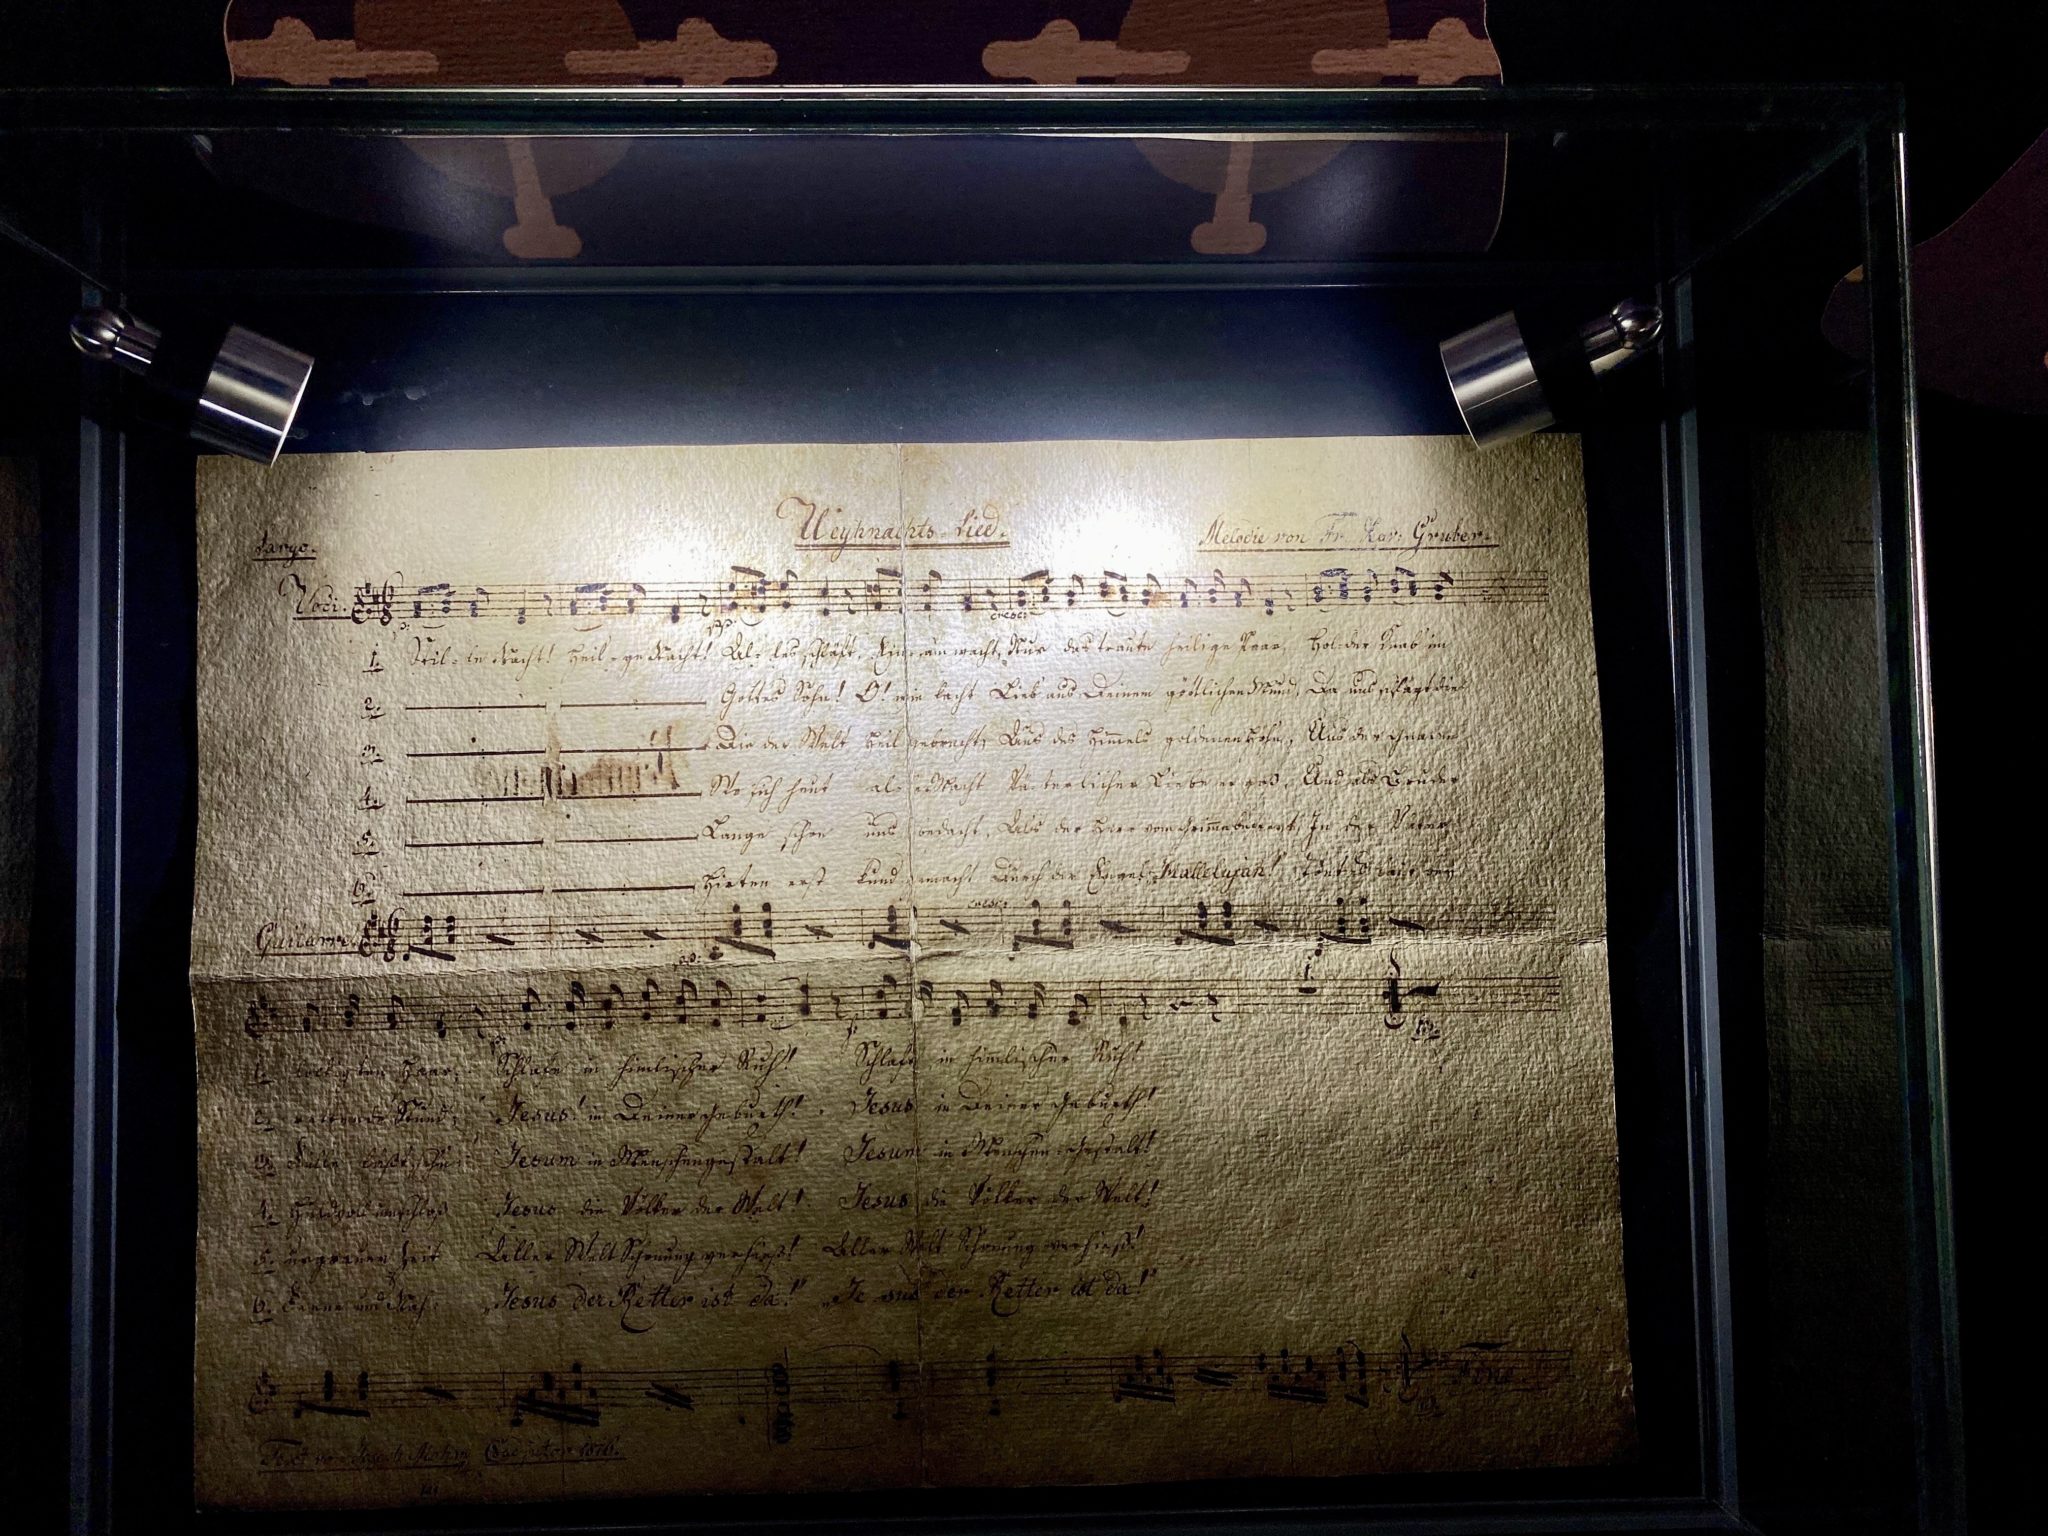 Weyhnachts-Lied.
Largo.
Melodie von Fr. Xav: Gruber.
Voci.
p: pp: cresc:
1. Stil-le Nacht! Heil-ge Nacht! Al-les schläft. Ein-sam wacht, Nur das traute heilige Paar, Hol-der Knab' im
2. Gottes Sohn! O! wie lacht Lieb' aus Deinem göttlichen Mund, Da uns schlägt die
3. Die der Welt Heil gebracht, Aus des Himmels goldenen Höhn, Aus der Gnaden
4. Wo sich heut al-le Macht Vä-terlicher Liebe ergoß, Und als Bruder
5. Lange schon uns bedacht, Als der Herr vom Grimme befreyt, In der Väter
6. Hirten erst kund gemacht Durch der Engel „Hallelujah!"
cresc:
Guitarre.
pp:
p
1. lockigten Haar, Schlafe in himlischer Ruh! Schlafe in himlischer Ruh!
2. rettende Stund; Jesus! in Deiner Geburth! Jesus in Deiner Geburth!
3. Fülle läßt sehn: Jesum in Menschengestalt! Jesum in Menschen-Gestalt!
4. Huldvoll umschloß Jesus die Völker der Welt! Jesus die Völker der Welt!
5. urgrauer Zeit Aller Welt Schonung verhieß! Aller Welt Schonung verhieß!
6. Ferne und Nah: „Jesus der Retter ist da!" „Je sus der Retter ist da!"
Fine
Text von Joseph Mohr Coadjutor 1816.